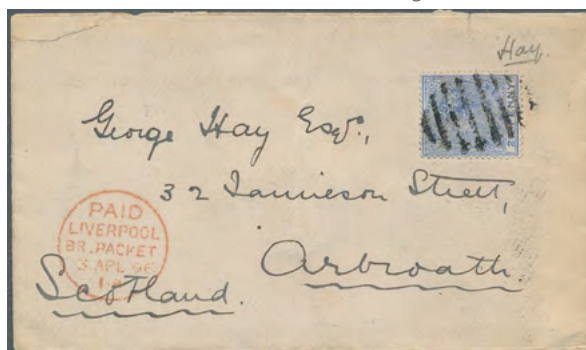 Hay.
George Hay Esqr.,
32 Jamieson Street,
Arbroath.
Scotland.
PAID
LIVERPOOL
BR. PACKET
3 APL 96
PENNY